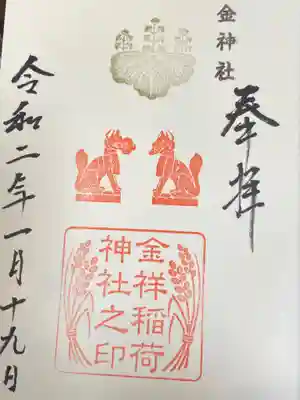 金神社
奉拝
金祥稲荷
神社之印
令和二年一月十九日